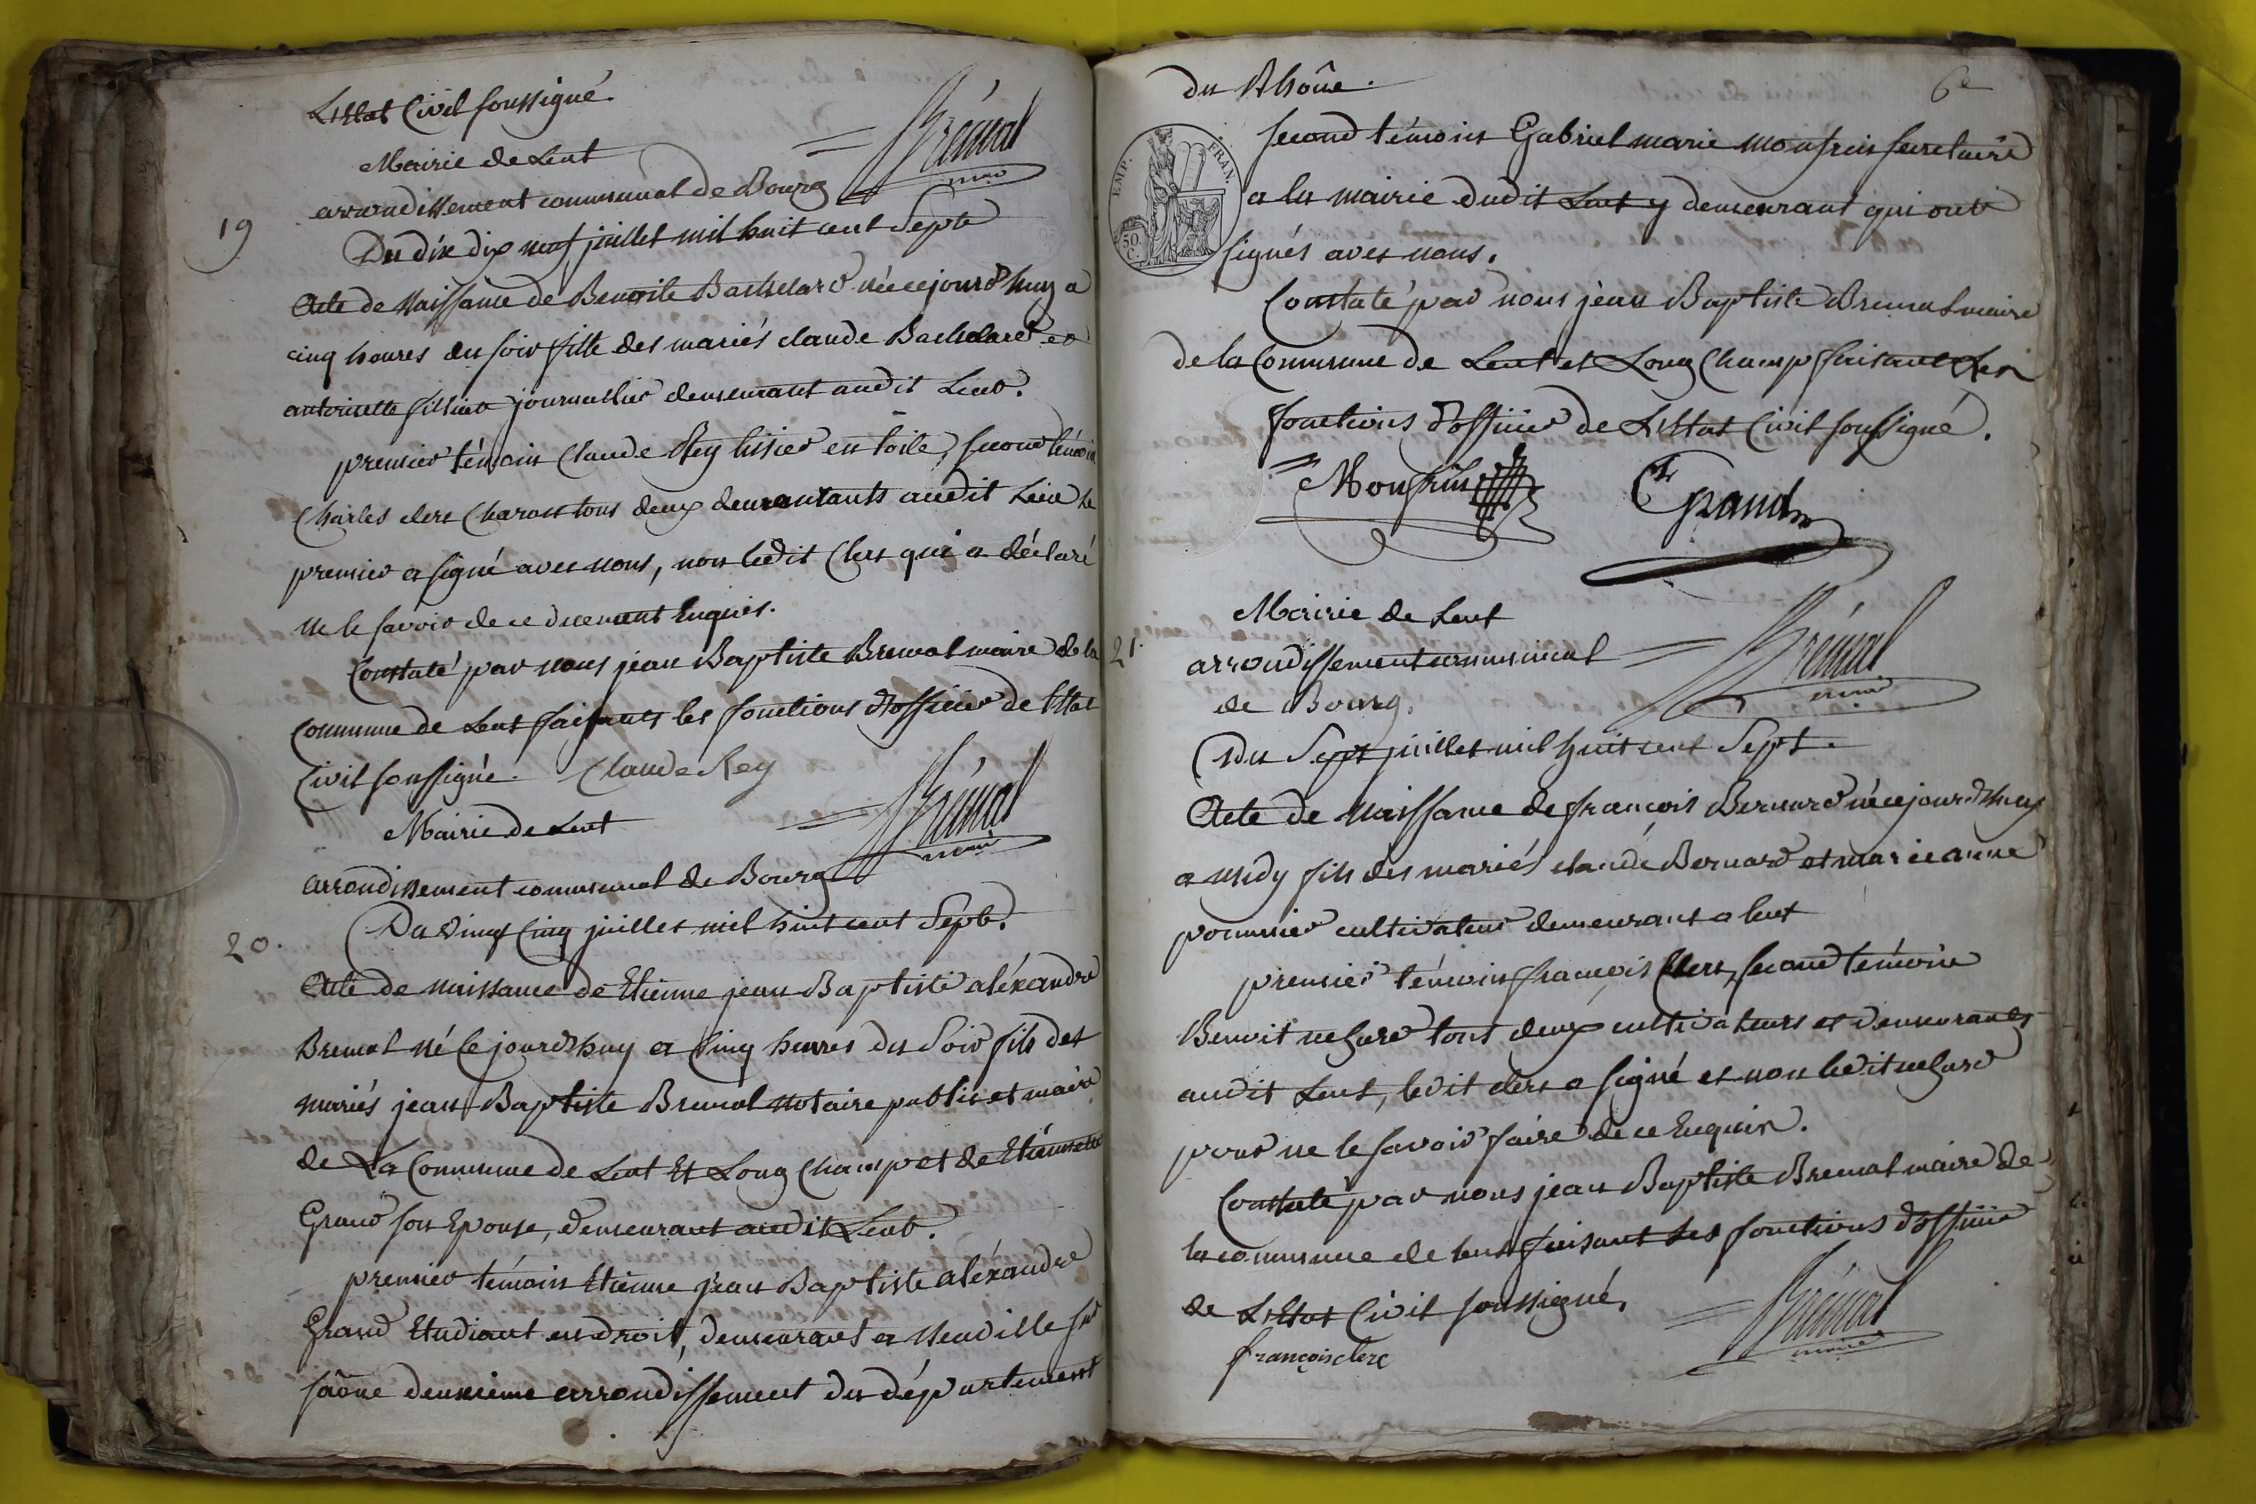 L'Etat Civil soussigné.
Brémal
maire
Mairie de Lent
arrondissement communal de Bourg
19
Du dix dix neuf juillet mil huit cent Sept
Acte de Naissance de Benoite Bachelard née cejourd'huy a
cinq heures du soir fille des mariés claude Bachelard et
antoinette journallier demeurant audit Lent.
premier témoin Claude Rey tissier en toile, second témoin
Charles clerc tous deux demeurants audit Lent le
premier a signé avec nous, non ledit Clerc qui a déclaré
ne le savoir de ce duement Enquis.
Constaté par nous jean Baptiste Bremal maire de la
Commune de Lent faisants les fonctions d'officier de l'Etat
Civil soussigné. Claude Rey
Brémal
maire
Mairie de Lent
arrondissement communal de Bourg
20.
Du vingt Cinq juillet mil huit cent Sept.
Acte de naissance de Etienne jean Baptiste aléxandre
Bremal né Ce jourd'huy a Cinq heures du Soir fils des
mariés jean Baptiste Bremal notaire public et maire
de La Commune de Lent Et Long Champ et de Etiennette
Grand son Epouse, demeurant audit Lent.
premier témoin Etienne jean Baptiste aléxandre
Grand Etudiant en droit, demeurant a Neuville sur
saône deuxième arrondissement du département
du Rhône.
6e
EMP. FRAN.
50 C.
second témoin Gabriel marie Monfrin secretaire
a la mairie dudit Lent y demeurant qui ont
signés avec nous.
Constaté par nous jean Baptiste Bremal maire
de la Commune de Lent et Long Champ faisant Les
fonctions d'officier de L'Etat Civil soussigné.
Monfrin
Grand
Mairie de Lent
21.
arrondissement communal
Brémal
maire
de Bourg.
Du Sept juillet mil huit cent Sept.
Acte de Naissance de françois Bernard né cejourd'huy
a midy fils des mariés claude Bernard et marie anne
pommier cultivateur demeurant a lent
premier témoin françois Clerc, second témoin
Benoit tous deux cultivateurs et demeurants
audit Lent, ledit clerc a signé et non ledit
pour ne le savoir faire de ce Enquis.
Constaté par nous jean Baptiste Bremal maire de
la commune de lent faisant les fonctions d'officier
de L'Etat Civil soussigné.
Brémal
maire
françois clerc